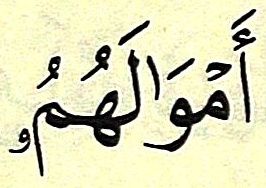 أَمْوَٰلَهُمُۥ